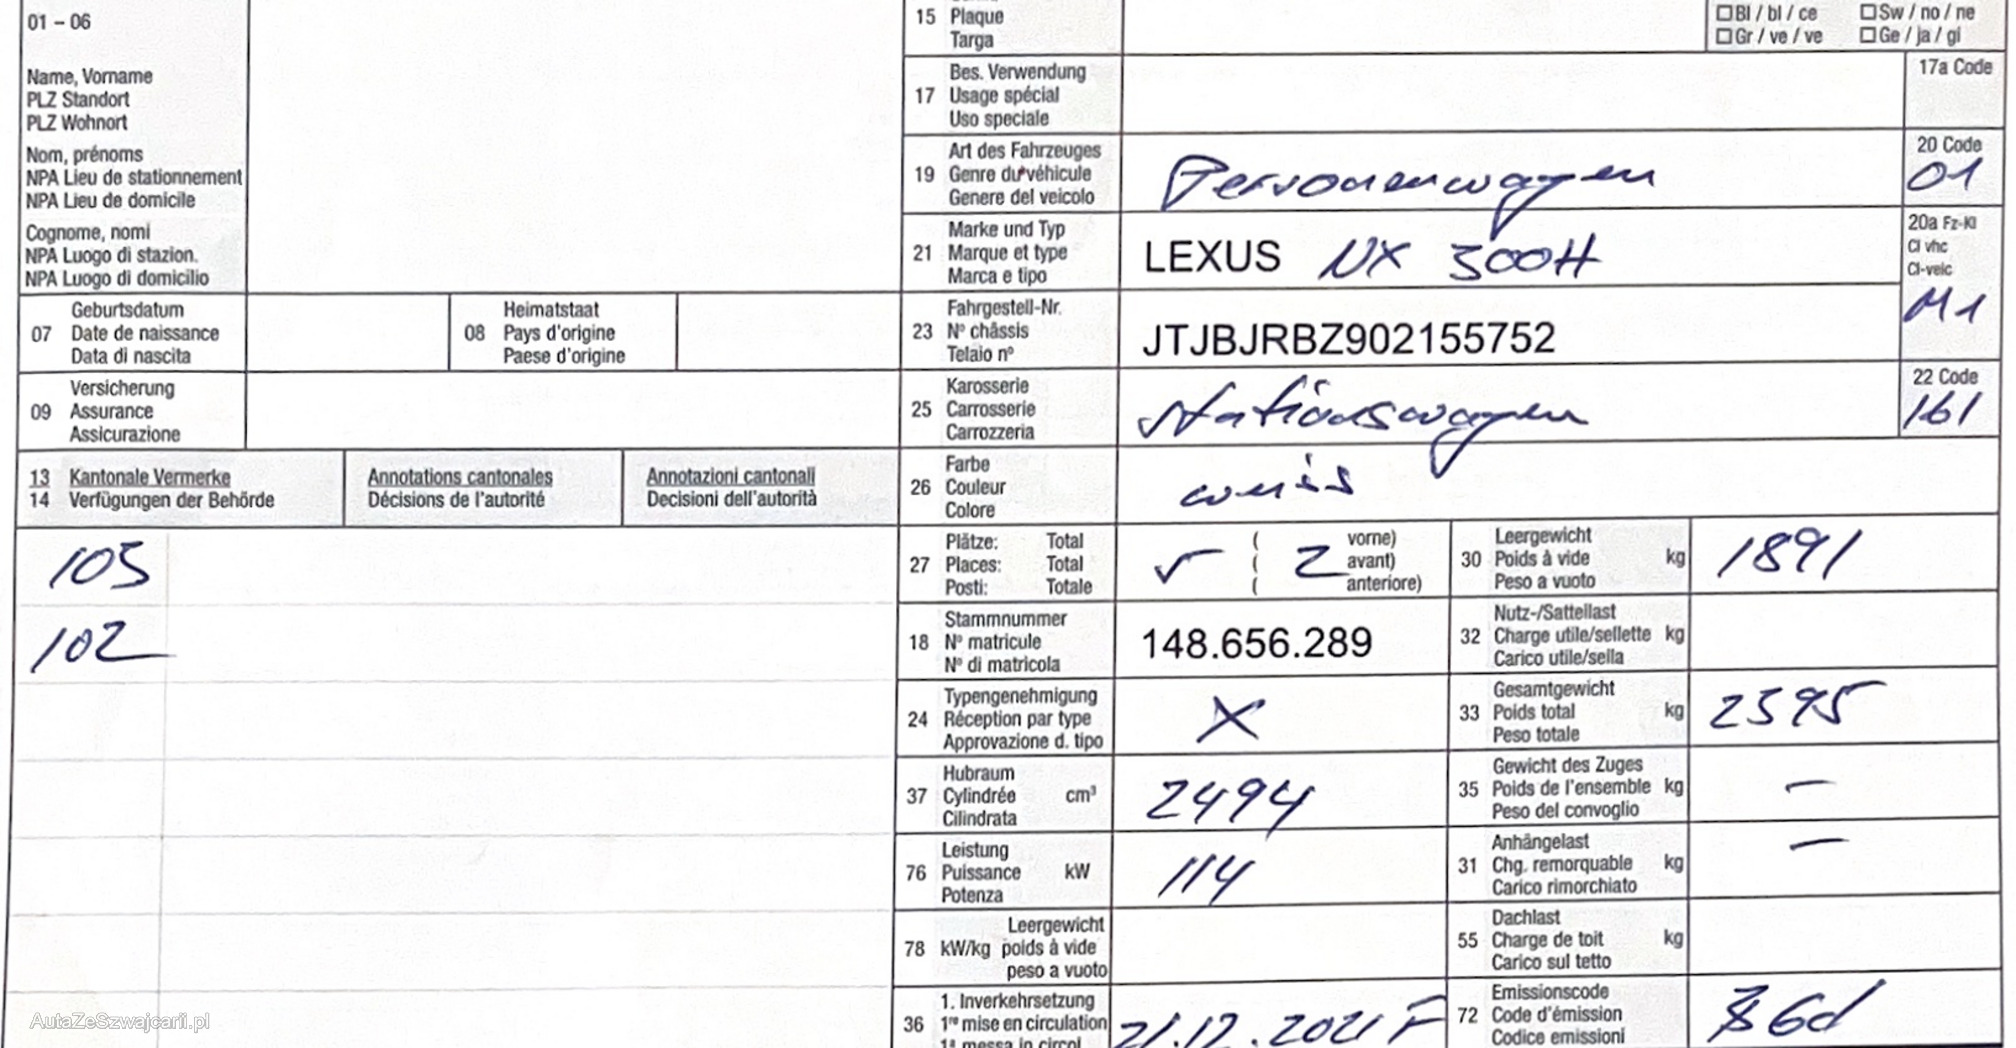 01 – 06
Name, Vorname
PLZ Standort
PLZ Wohnort
Nom, prénoms
NPA Lieu de stationnement
NPA Lieu de domicile
Cognome, nomi
NPA Luogo di stazion.
NPA Luogo di domicilio
07 Geburtsdatum
Date de naissance
Data di nascita
08 Heimatstaat
Pays d'origine
Paese d'origine
09 Versicherung
Assurance
Assicurazione
13 Kantonale Vermerke
14 Verfügungen der Behörde
Annotations cantonales
Décisions de l'autorité
Annotazioni cantonali
Decisioni dell'autorità
105
102
15 Plaque
Targa
Bl / bl / ce
Sw / no / ne
Gr / ve / ve
Ge / ja / gl
17 Bes. Verwendung
Usage spécial
Uso speciale
17a Code
19 Art des Fahrzeuges
Genre du véhicule
Genere del veicolo
Personenwagen
20 Code
01
21 Marke und Typ
Marque et type
Marca e tipo
LEXUS NX 300H
20a Fz-Kl
Cl vhc
Cl-veic
M1
23 Fahrgestell-Nr.
Nº châssis
Telaio nº
JTJBJRBZ902155752
25 Karosserie
Carrosserie
Carrozzeria
Stationswagen
22 Code
161
26 Farbe
Couleur
Colore
weiss
27 Plätze: Total
Places: Total
Posti: Totale
5 ( 2 vorne)
( avant)
( anteriore)
30 Leergewicht
Poids à vide kg
Peso a vuoto
1891
18 Stammnummer
Nº matricule
Nº di matricola
148.656.289
32 Nutz-/Sattellast
Charge utile/sellette kg
Carico utile/sella
24 Typengenehmigung
Réception par type
Approvazione d. tipo
X
33 Gesamtgewicht
Poids total kg
Peso totale
2395
37 Hubraum
Cylindrée cm³
Cilindrata
2494
35 Gewicht des Zuges
Poids de l'ensemble kg
Peso del convoglio
–
76 Leistung
Puissance kW
Potenza
114
31 Anhängelast
Chg. remorquable kg
Carico rimorchiato
–
78 Leergewicht
kW/kg poids à vide
peso a vuoto
55 Dachlast
Charge de toit kg
Carico sul tetto
36 1. Inverkehrsetzung
1re mise en circulation
1ª messa in circol.
21.12.2021 F
72 Emissionscode
Code d'émission
Codice emissioni
B6d
AutaZeSzwajcarii.pl